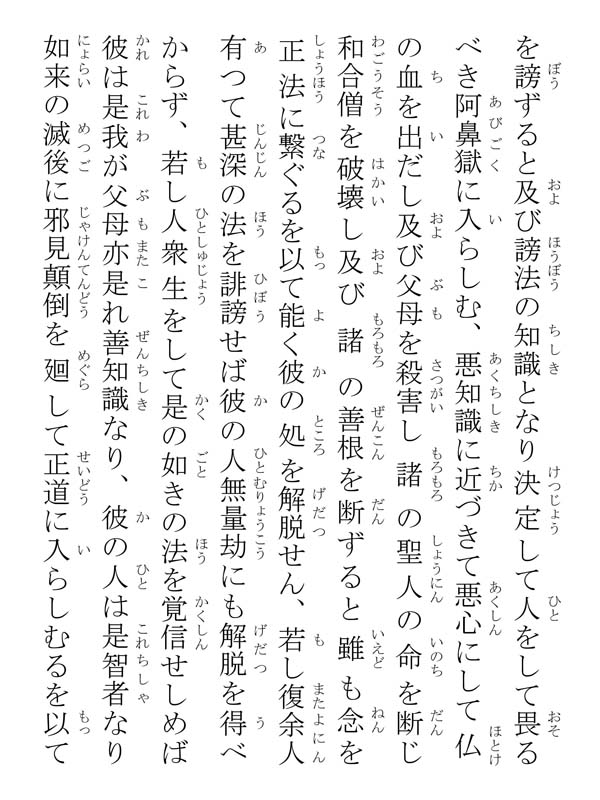 を謗ずると及び謗法の知識となり決定して人をして畏る
べき阿鼻獄に入らしむ、悪知識に近づきて悪心にして仏
の血を出だし及び父母を殺害し諸の聖人の命を断じ
和合僧を破壊し及び諸の善根を断ずると雖も念を
正法に繋ぐるを以て能く彼の処を解脱せん、若し復余人
有つて甚深の法を誹謗せば彼の人無量劫にも解脱を得べ
からず、若し人衆生をして是の如きの法を覚信せしめば
彼は是我が父母亦是れ善知識なり、彼の人は是智者なり
如来の滅後に邪見顛倒を廻して正道に入らしむるを以て